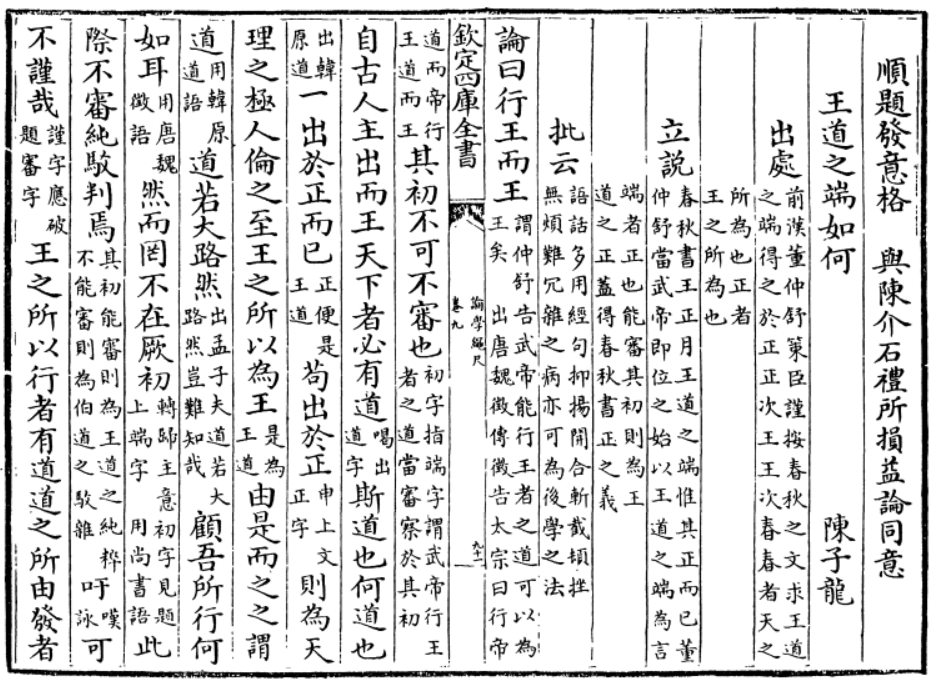 順題發意格 與陳介石禮所損益論同意
王道之端如何 陳子龍
出處 前漢董仲舒策臣謹按春秋之文求王道之端得之於正正次王王次春春者天之
所為也正者王之所為也
立說 春秋書王正月王道之端惟其正而已董仲舒當武帝即位之始以王道之端為言
端者正也能審其初則為王道之正蓋得春秋書正之義
批云 語話多用經句抑揚開合斬截頓挫無煩難冗雜之病亦可為後學之法
論曰行王而王 謂仲舒告武帝能行王者之道可以為王矣 出唐魏徵傳徵告太宗曰行帝
欽定四庫全書 論學繩尺 卷九 九十一
道而帝行王道而王 其初不可不審也 初字指端字謂武帝行王者之道當審察於其初
自古人主出而王天下者必有道 喝出道字 斯道也何道也
出韓原道 一出於正而已 正便是王道 苟出於正 申上文正字 則為天
理之極人倫之至王之所以為王 是為王道 由是而之之謂
道 用韓原道語 道若大路然 出孟子夫道若大路然豈難知哉 顧吾所行何
如耳 用唐魏徵語 然而罔不在厥初 轉歸主意初字見題上端字 用尚書語 此
際不審純駁判焉 其初能審則為王道之純粹不能審則為伯道之駁雜 吁嘆詠 可
不謹哉 謹字應破題審字 王之所以行者有道道之所由發者